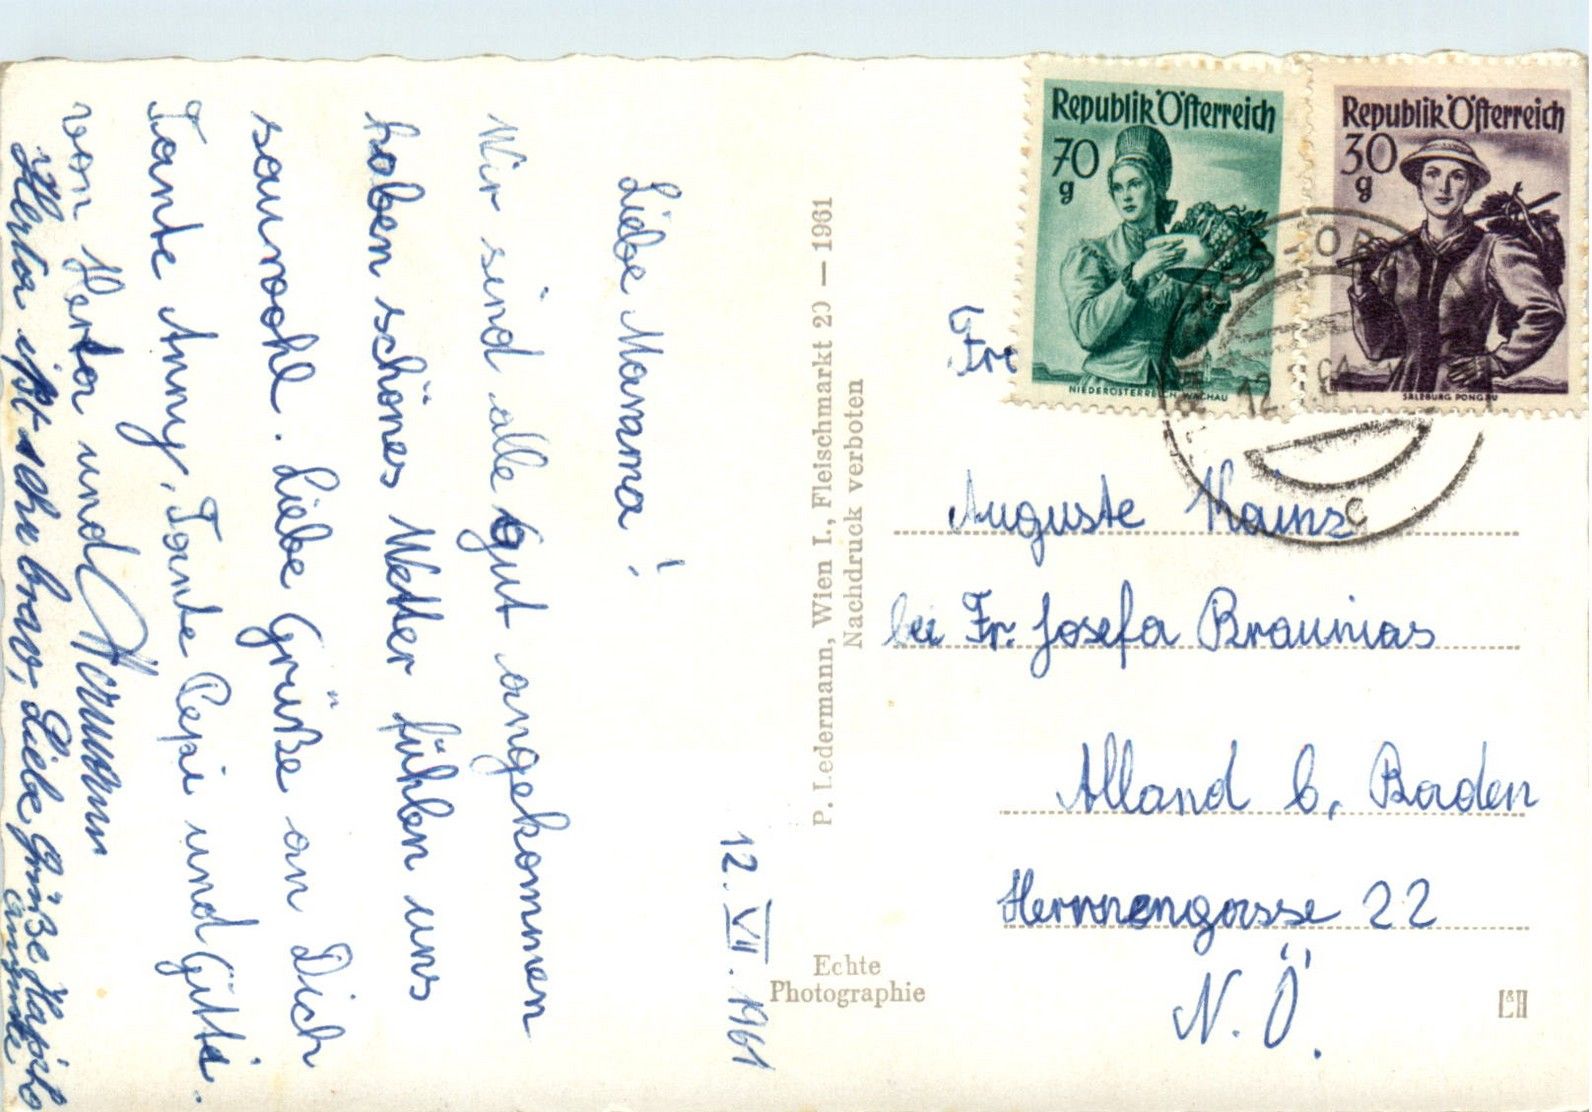 12. VII. 1961
Liebe Mamma!
Wir sind alle gut angekommen
haben schönes Wetter fühlen uns
sauwohl. Liebe Grüße an Dich
Tante Anny, Tante Pepi und Gitti.
von Herta und Hermann
Herta ißt sehr brav, Liebe Grüße
P. Ledermann, Wien I., Fleischmarkt 20 — 1961
Nachdruck verboten
Echte
Photographie
Republik Österreich
70
g
NIEDERÖSTERREICH, WACHAU
Republik Österreich
30
g
SALZBURG PONGAU
C
Auguste Mainz
bei Fr. Josefa Braunias
Alland b. Baden
Herrengasse 22
N.Ö.